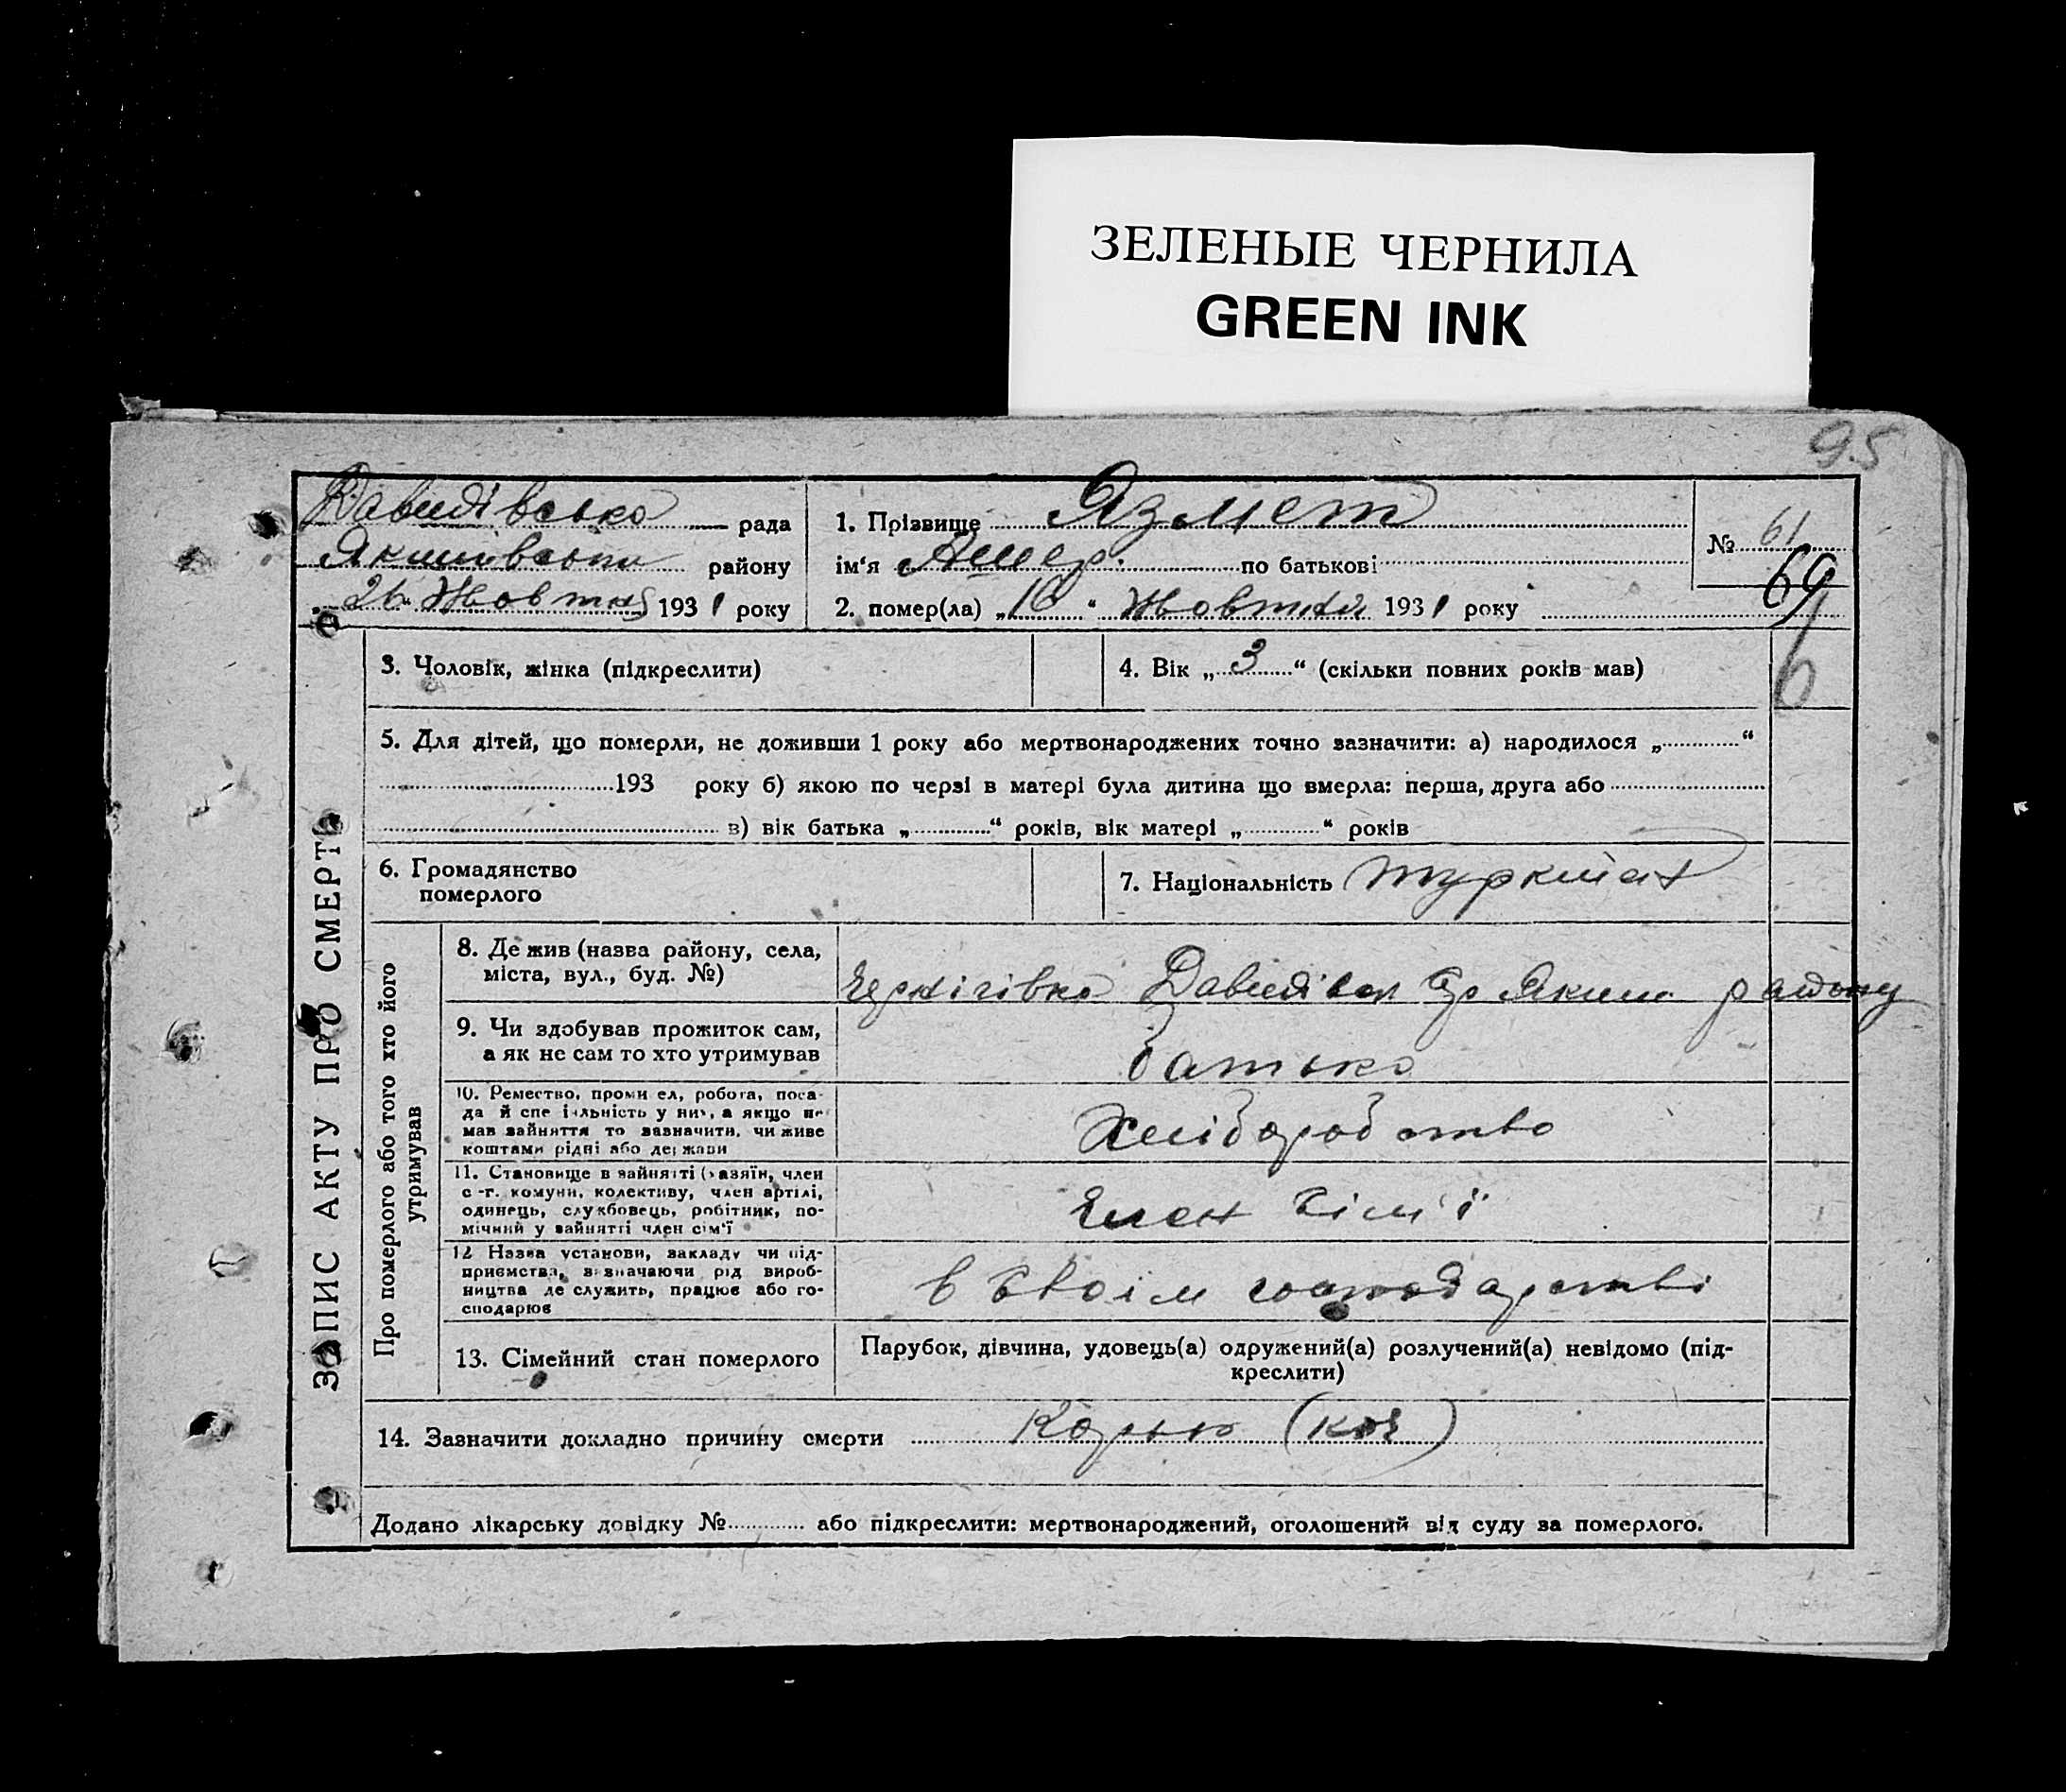 ЗЕЛЕНЫЕ ЧЕРНИЛА
GREEN INK
95
Давидівська рада
Якимівського району
26 Жовтня 1931 року
1. Прізвище Язмет
ім‘я Ашер. по батькові
2. помер(ла) „16“ Жовтня 1931 року
№ 61
69
6
ЗАПИС АКТУ ПРО СМЕРТЬ
3. Чоловік, жінка (підкреслити)
4. Вік „3“ (скільки повних років мав)
5. Для дітей, що померли, не доживши 1 року або мертвонароджених точно зазначити: а) народилося „ “
193 року б) якою по черзі в матері була дитина що вмерла: перша, друга або
в) вік батька „ “ років, вік матері „ “ років
6. Громадянство
померлого
7. Національність туркмен
Про померлого або того хто його
утримував
8. Де жив (назва району, села,
міста, вул., буд. №)
Чернігівка Давидівск с/р Яким району
9. Чи здобував прожиток сам,
а як не сам то хто утримував
батько
10. Ремество, промисел, робота, поса-
да й спеціяльність у них, а якщо не
мав зайняття то зазначити, чи живе
коштами рідні або держави
Хліборобство
11. Становище в зайнятті (хазяїн, член
с.-г. комуни, колективу, член артілі,
одинець, службовець, робітник, по-
мічний у зайнятті член сім‘ї
Член сім'ї
12 Назва установи, закладу чи під-
приємства, зазначаючи рід вироб-
ництва де служить, працює або го-
сподарює
в своїм господарстві
13. Сімейний стан померлого
Парубок, дівчина, удовець(а) одружений(а) розлучений(а) невідомо (під-
креслити)
14. Зазначити докладно причину смерти Корью (кір)
Додано лікарську довідку № або підкреслити: мертвонароджений, оголошений від суду за померлого.